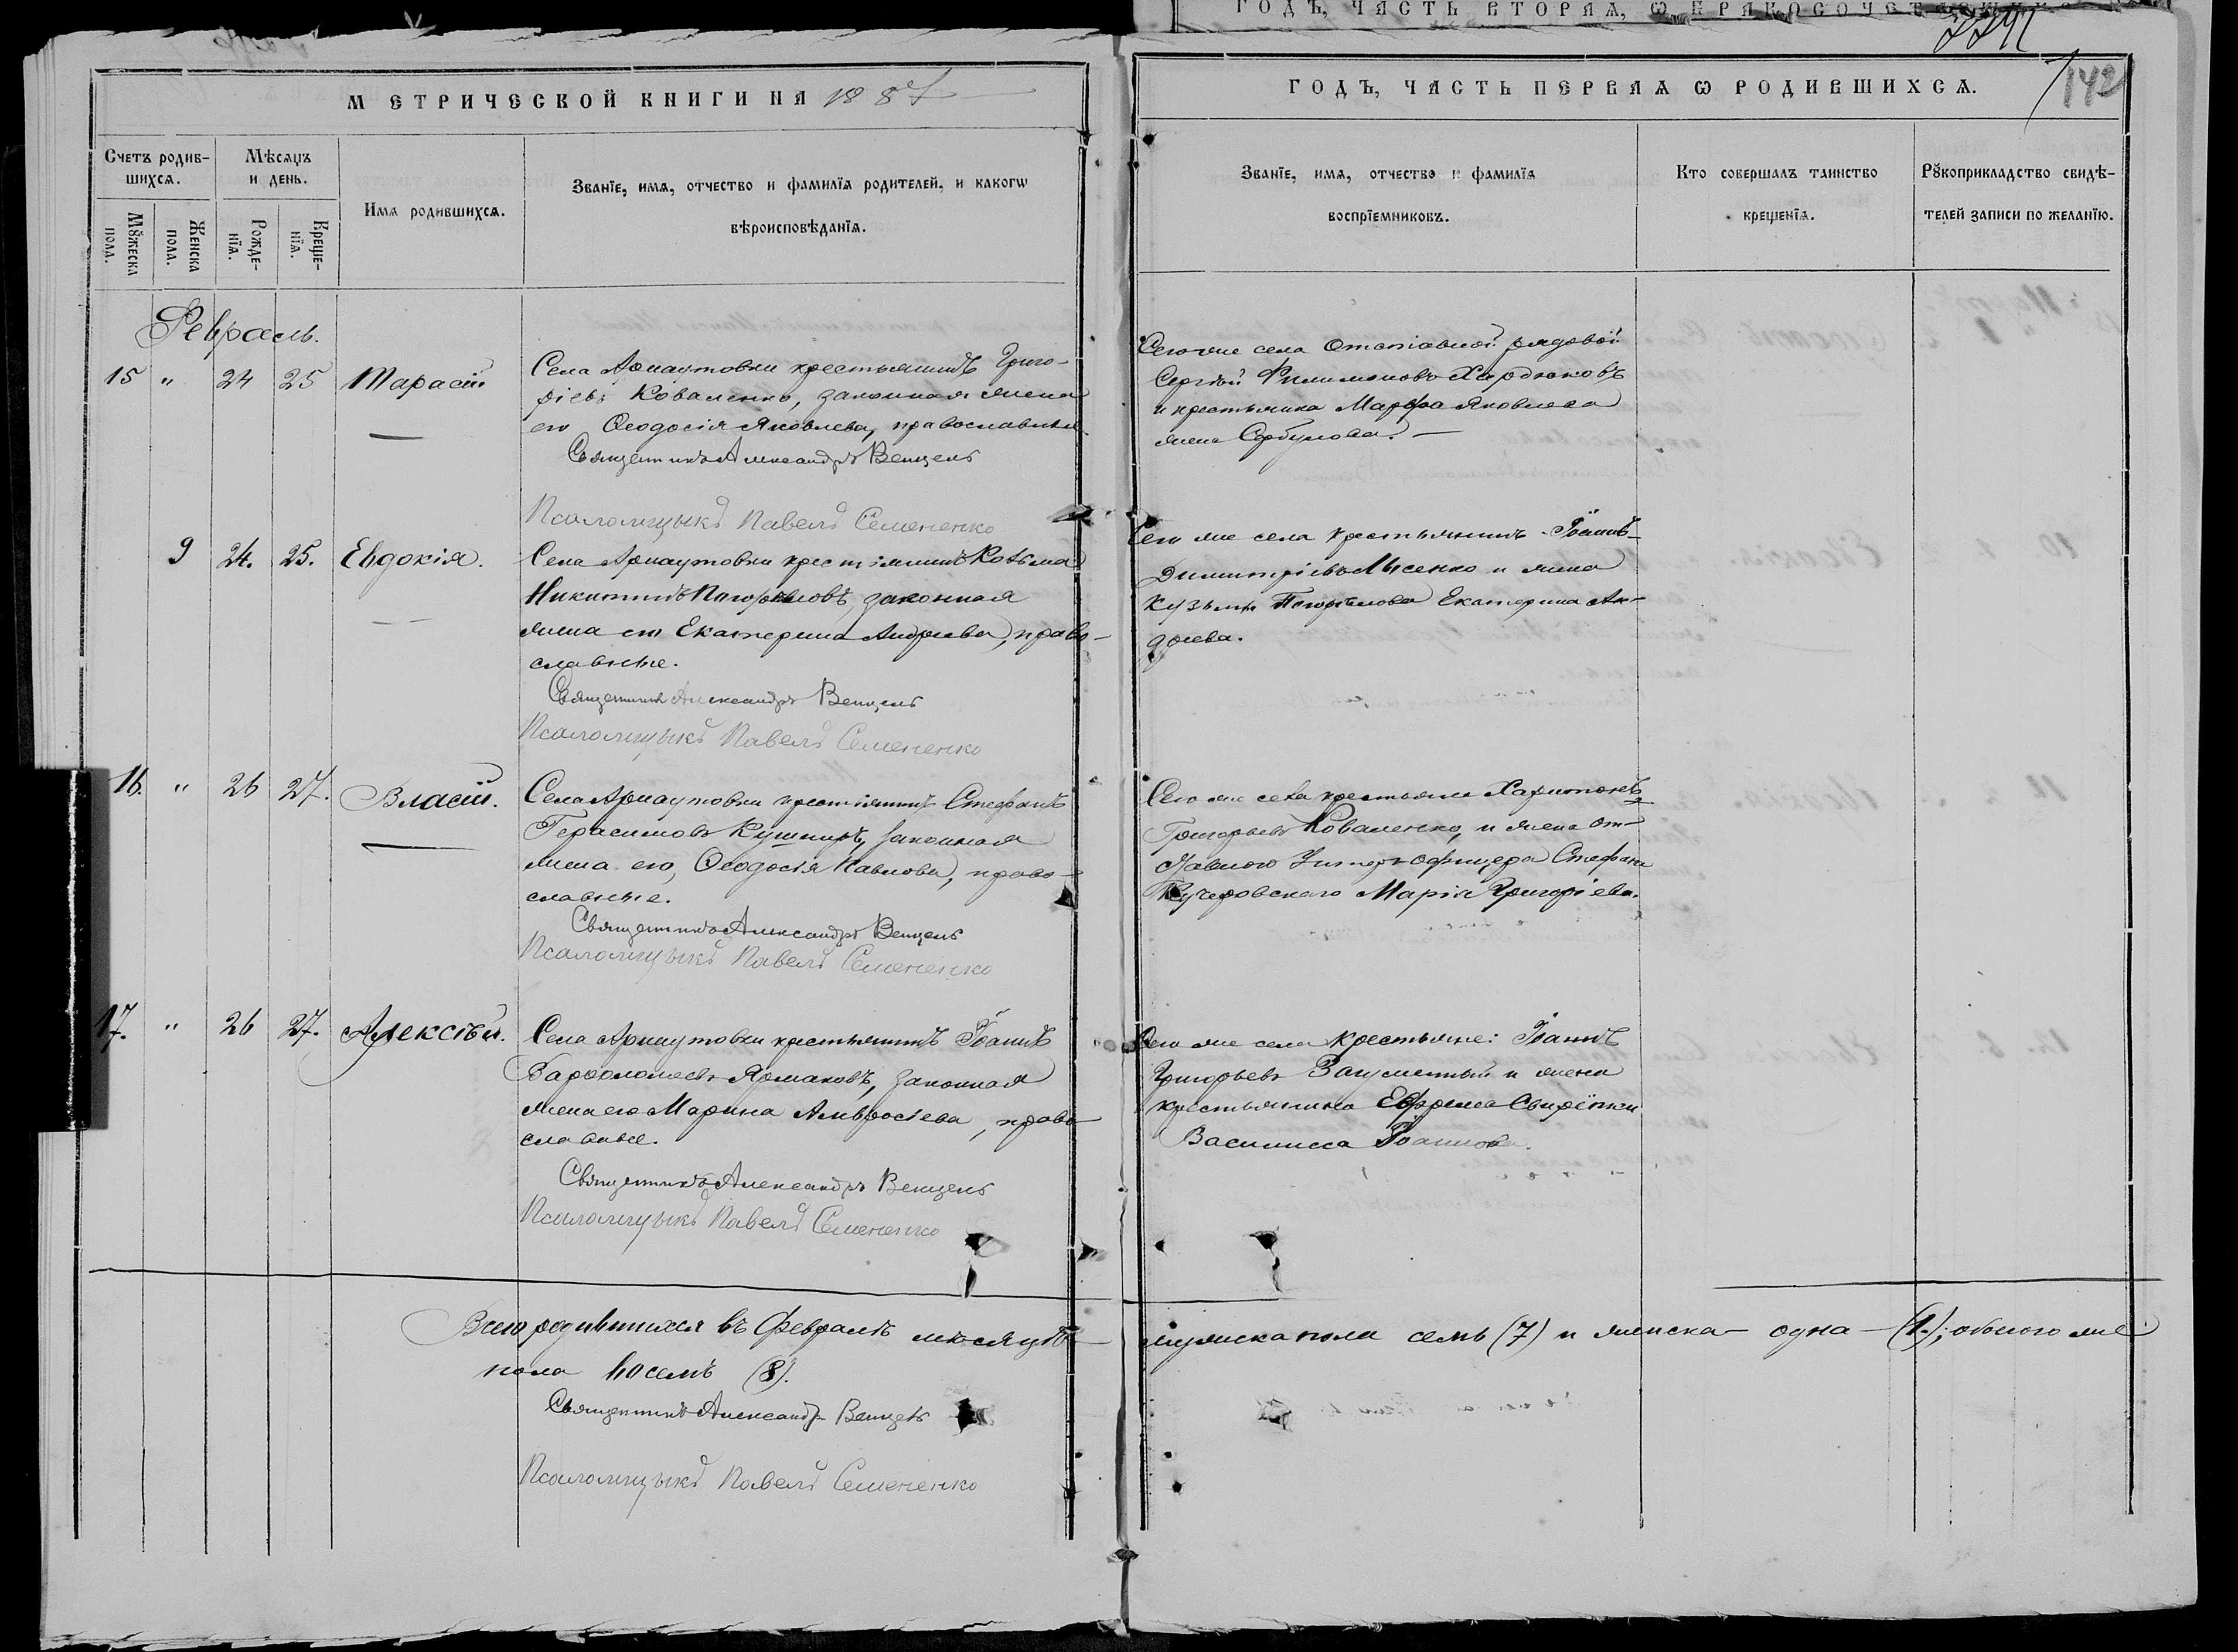 ГОДЪ, ЧАСТЬ ВТОРАѦ, Ѡ БРАКОСОЧЕТАВШИХСѦ
МЕТРИЧЕСКОЙ КНИГИ НА 1887
ГОДЪ, ЧАСТЬ ПЕРВАѦ Ѡ РОДИВШИХСѦ.
142
Счетъ родив-
шихсѧ.
Мѣсѧцъ
и день.
Мꙋжеска
пола.
Женска
пола.
Рожде-
нїѧ.
Креще-
нїѧ.
Имѧ родившихсѧ.
Званїе, имѧ, отчество и фамилїѧ родителей, и какогѡ
вѣроисповѣданїѧ.
Званїе, имѧ, отчество и фамилїѧ
воспрїемниковъ.
Кто совершалъ таинство
крещенїѧ.
Рꙋкоприкладство свидѣ-
телей записи по желанїю.
Февраль.
15 " 24 25 Тарасій
Села Арнаутовки крестьянинъ Григо-
ріевъ Коваленко, законная жена
его Ѳеодосія Яковлева, православные
Священникъ Александръ Венцель
Псаломщикъ Павелъ Семененко
Сего же села Отставной рядовой
Сергѣй Филимоновъ
и крестьянка Марѳа Яковлева
жена
9 24. 25. Евдокія.
Села Арнаутовки крестьянинъ Козьма
Никитинъ Погорѣловъ, законная
жена его Екатерина Андреева, право-
славные.
Священникъ Александръ Венцель
Псаломщикъ Павелъ Семененко
Сего же села крестьянинъ Іоаннъ
Димитріевъ Лысенко и жена
Кузьмы Погорѣлова Екатерина Ан-
дреева.
16. " 26 27. Власій.
Села Арнаутовки крестьянинъ Стефанъ
Герасимовъ Кушниръ, законная
жена его, Ѳеодосія Павлова, право-
славные.
Священникъ Александръ Венцель
Псаломщикъ Павелъ Семененко
Сего же села крестьяне Харитонъ
Григорьевъ Коваленко, и жена от-
ставного Унтеръ-офицера Стефана
Кучеровскаго Марія Григоріева.
17. " 26 27. Алексѣй.
Села Арнаутовки крестьянинъ Іоаннъ
Варѳоломеевъ Ярмаковъ, законная
жена его Марина Амвросіева, право-
славные.
Священникъ Александръ Венцель
Псаломщикъ Павелъ Семененко
Сего же села крестьяне: Іоаннъ
Григорьевъ и жена
крестьянина Ефрема
Василисса Іоаннова.
Всего родившихся въ Февралѣ мѣсяцѣ мужеска пола семь (7) и женска одна (1); обоего же
пола восемь (8).
Священникъ Александръ Венцель
Псаломщикъ Павелъ Семененко